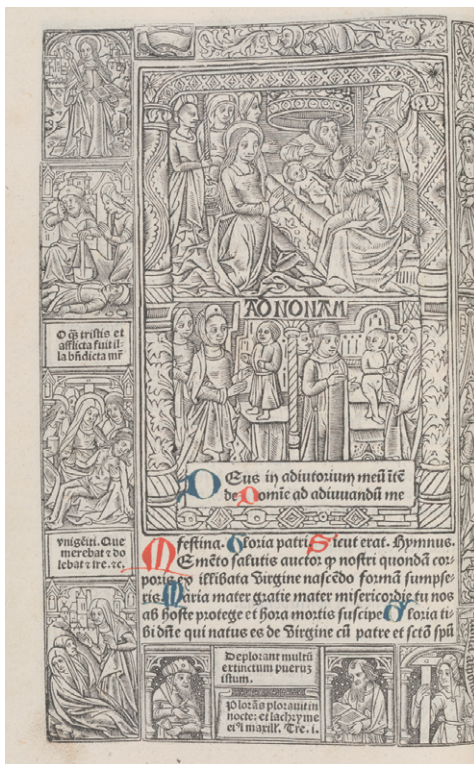 O q̃ tristis et
afflicta fuit il-
la bñdicta mr̃
vnigẽiti. Que
merebat ⁊ do
lebat ⁊ tre. ⁊c.
AD NONAM
DEus in adiutorium meũ ĩtẽ
de Domĩe ad adiuuandũ me
festina. Gloria patri Sicut erat. Hymnus.
MEmẽto salutis auctor ꝙ nostri quondã cor
poris ex illibata virgine nascẽdo formã sumpse-
ris Maria mater gratie mater misericordie tu nos
ab hoste protege et hora mortis suscipe Gloria ti-
bi dñe qui natus es de virgine cũ patre et sctõ spũ
Deplorant multũ
extinctum puerum
istum.
Plorãs plorauit in
nocte: et lachryme
eiꝰ ĩ maxill'. Tre. i.